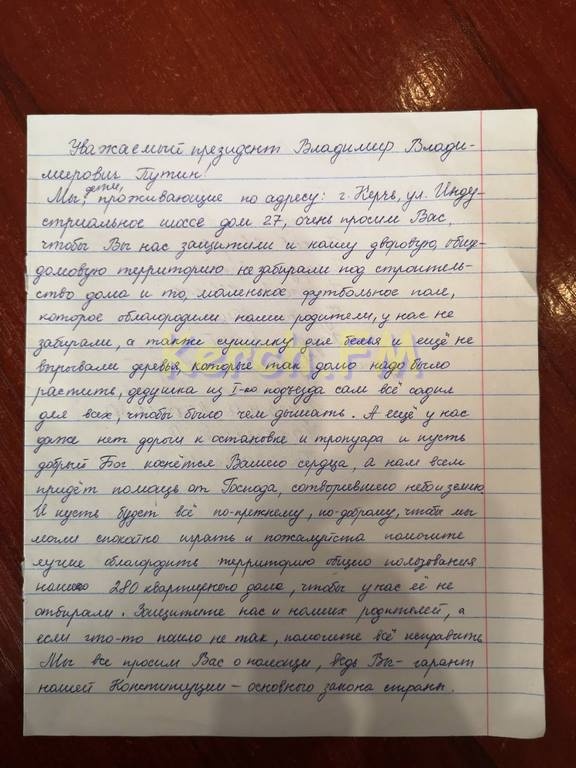 Уважаемый президент Владимир Влади-
мирович Путин!
Мы, дети, проживающие по адресу: г. Керчь, ул. Инду-
стриальное шоссе дом 27, очень просим Вас,
чтобы Вы нас защитили и нашу дворовую, обще-
домовую территорию не забирали под строитель-
ство дома и то, маленькое футбольное поле,
которое облагородили наши родители, у нас не
забирали, а также сушилку для белья и ещё не
вырывали деревья, которые так долго надо было
растить, дедушка из I-го подъезда сам всё садил
для всех, чтобы было чем дышать. А ещё у нас
даже нет дороги к остановке и тротуара и пусть
добрый Бог коснётся Вашего сердца, а нам всем
придёт помощь от Господа, сотворившего небо и землю.
И пусть будет всё по-прежнему, по-доброму, чтобы мы
могли спокойно играть и пожалуйста помогите
лучше облагородить территорию общего пользования
нашего 280 квартирного дома, чтобы у нас её не
отбирали. Защитите нас и наших родителей, а
если что-то пошло не так, помогите всё исправить.
Мы все просим Вас о помощи, ведь Вы - гарант
нашей Конституции - основного закона страны.
Kerch.FM